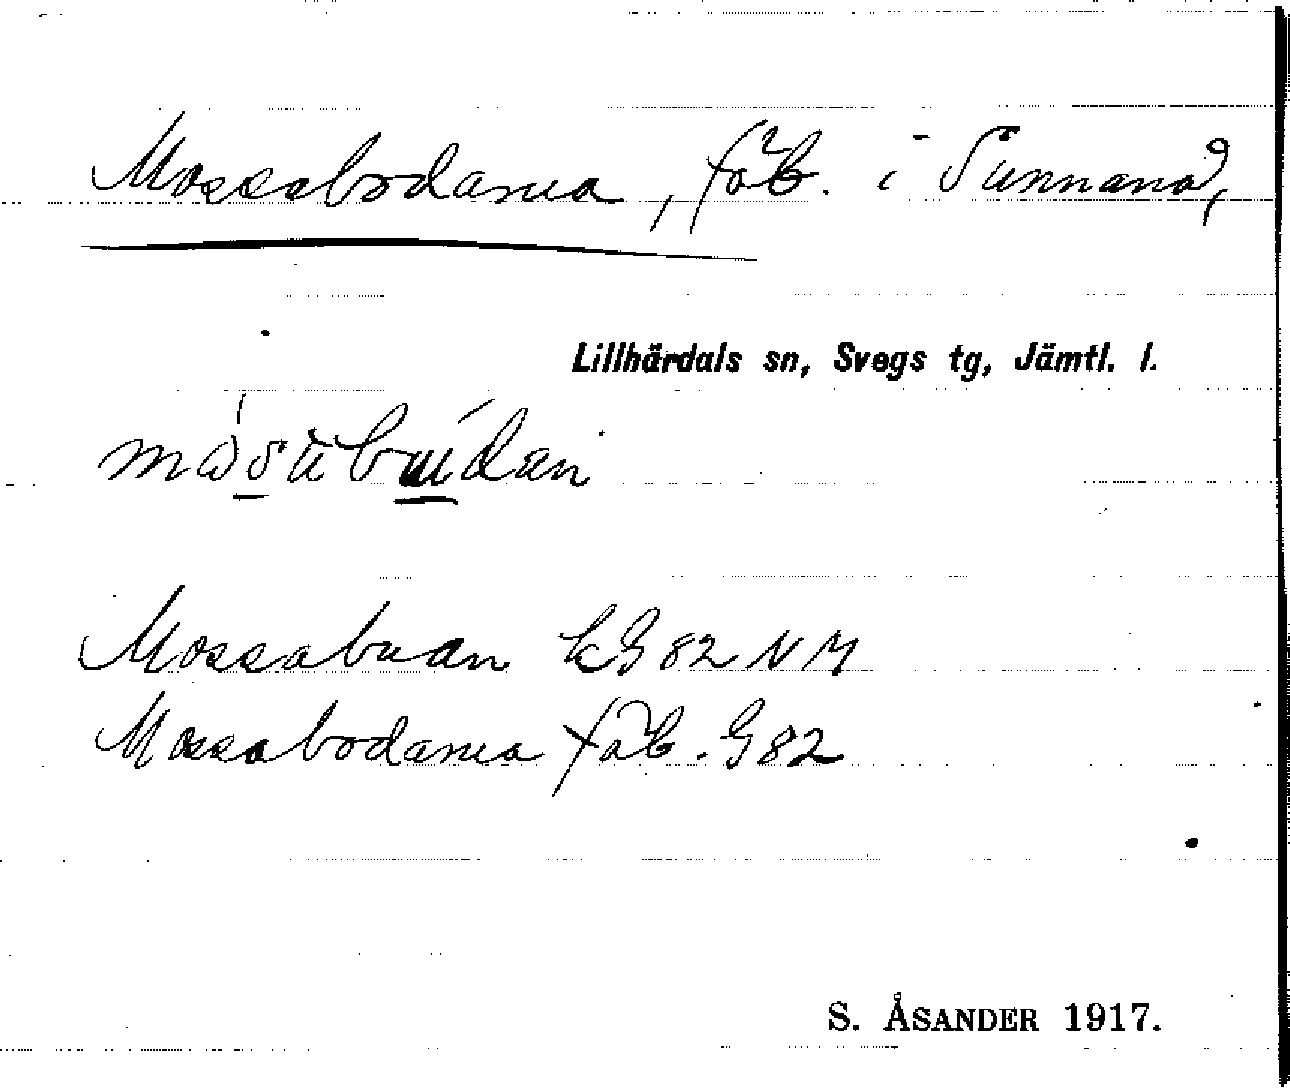 Mossabodarna, fäb. i Sunnanå,
Lillhärdals sn, Svegs tg, Jämtl. l.
Mossabuan kG 82 NM
Mossabodarna fäb. G 82
S. ÅSANDER 1917.